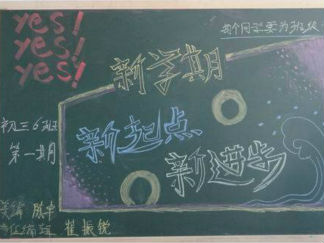 yes!
yes!
yes!
每个同学要为班级
新学期
新起点
新进步
初三6班
第一期
美编
崔振锐